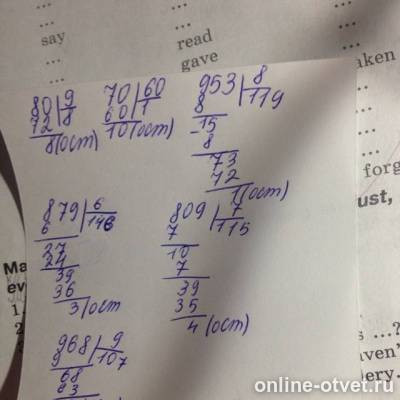 ...
say
...
read
gave
...
aken
80 | 9
72 | 8
8 (ост)
70 | 60
60 | 1
10 (ост)
953 | 8
8 | 119
- 15
8
73
72
1 (ост)
forg
ust,
879 | 6
6 | 146
27
24
39
36
3 (ост
809 | 7
7 | 115
10
7
39
35
4 (ост)
Ma
ev
1.
2
968 | 9
9 | 107
68
63
s ...?
aven'
ery.
online-otvet.ru